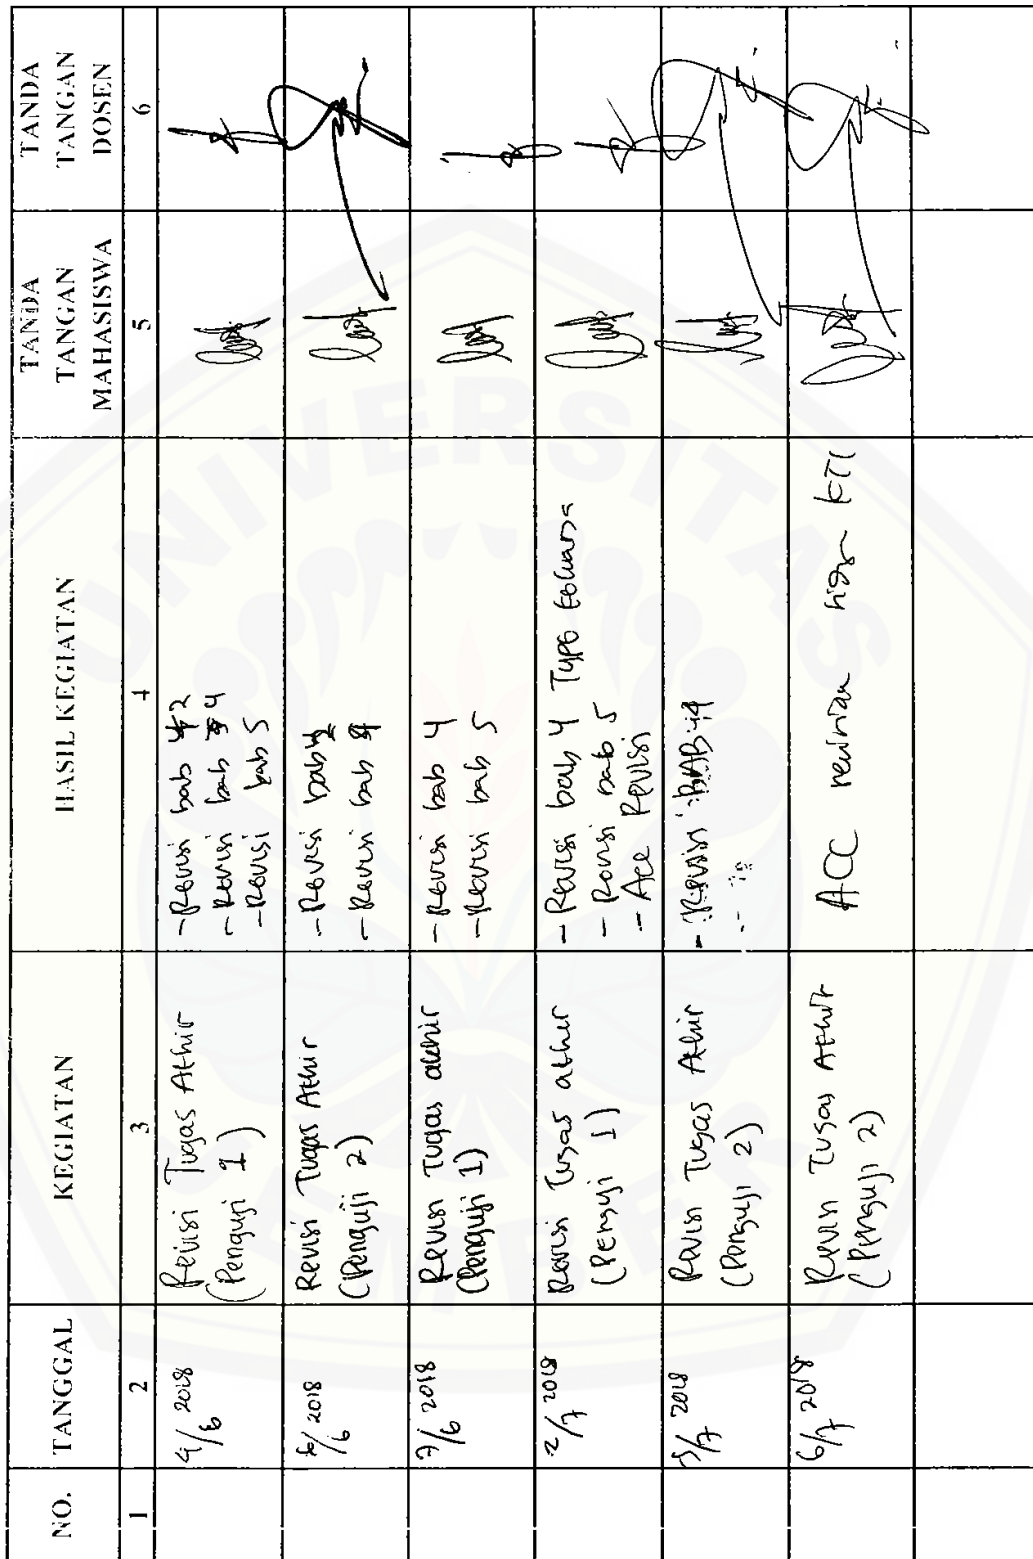 NO.
TANGGAL
KEGIATAN
HASIL KEGIATAN
TANDA
TANGAN
MAHASISWA
TANDA
TANGAN
DOSEN
1
2
3
4
5
6
4/6 2018
Revisi Tugas Akhir
(Penguji 1)
- Revisi bab 2
- Revisi bab 4
- Revisi bab 5
/6 2018
Revisi Tugas Akhir
(Penguji 2)
- Revisi bab
- Revisi bab
7/6 2018
Revisi Tugas akhir
(Penguji 1)
- Revisi bab 4
- Revisi bab 5
2/7 2018
Revisi Tugas akhir
(Penguji 1)
- Revisi bab 4 Typo
- Revisi bab 5
- Acc Revisi
5/7 2018
Revisi Tugas Akhir
(Penguji 2)
- Revisi BAB 4
6/7 2018
Revisi Tugas Akhir
(Penguji 2)
ACC KTI
UNIVERSITAS
JEMBER